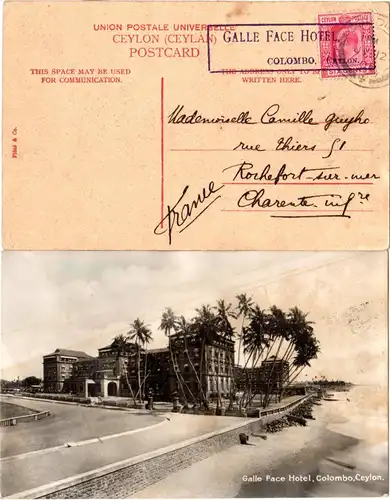 UNION POSTALE UNIVERSELLE
CEYLON (CEYLAN)
POSTCARD
GALLE FACE HOTEL,
COLOMBO, CEYLON.
THIS SPACE MAY BE USED
FOR COMMUNICATION.
THE ADDRESS ONLY TO
WRITTEN HERE.
Plâté & Co.
Mademoiselle Camille
rue Thiers 51
Rochefort-sur-mer
Charente infre
France
Galle Face Hotel, Colombo, Ceylon.